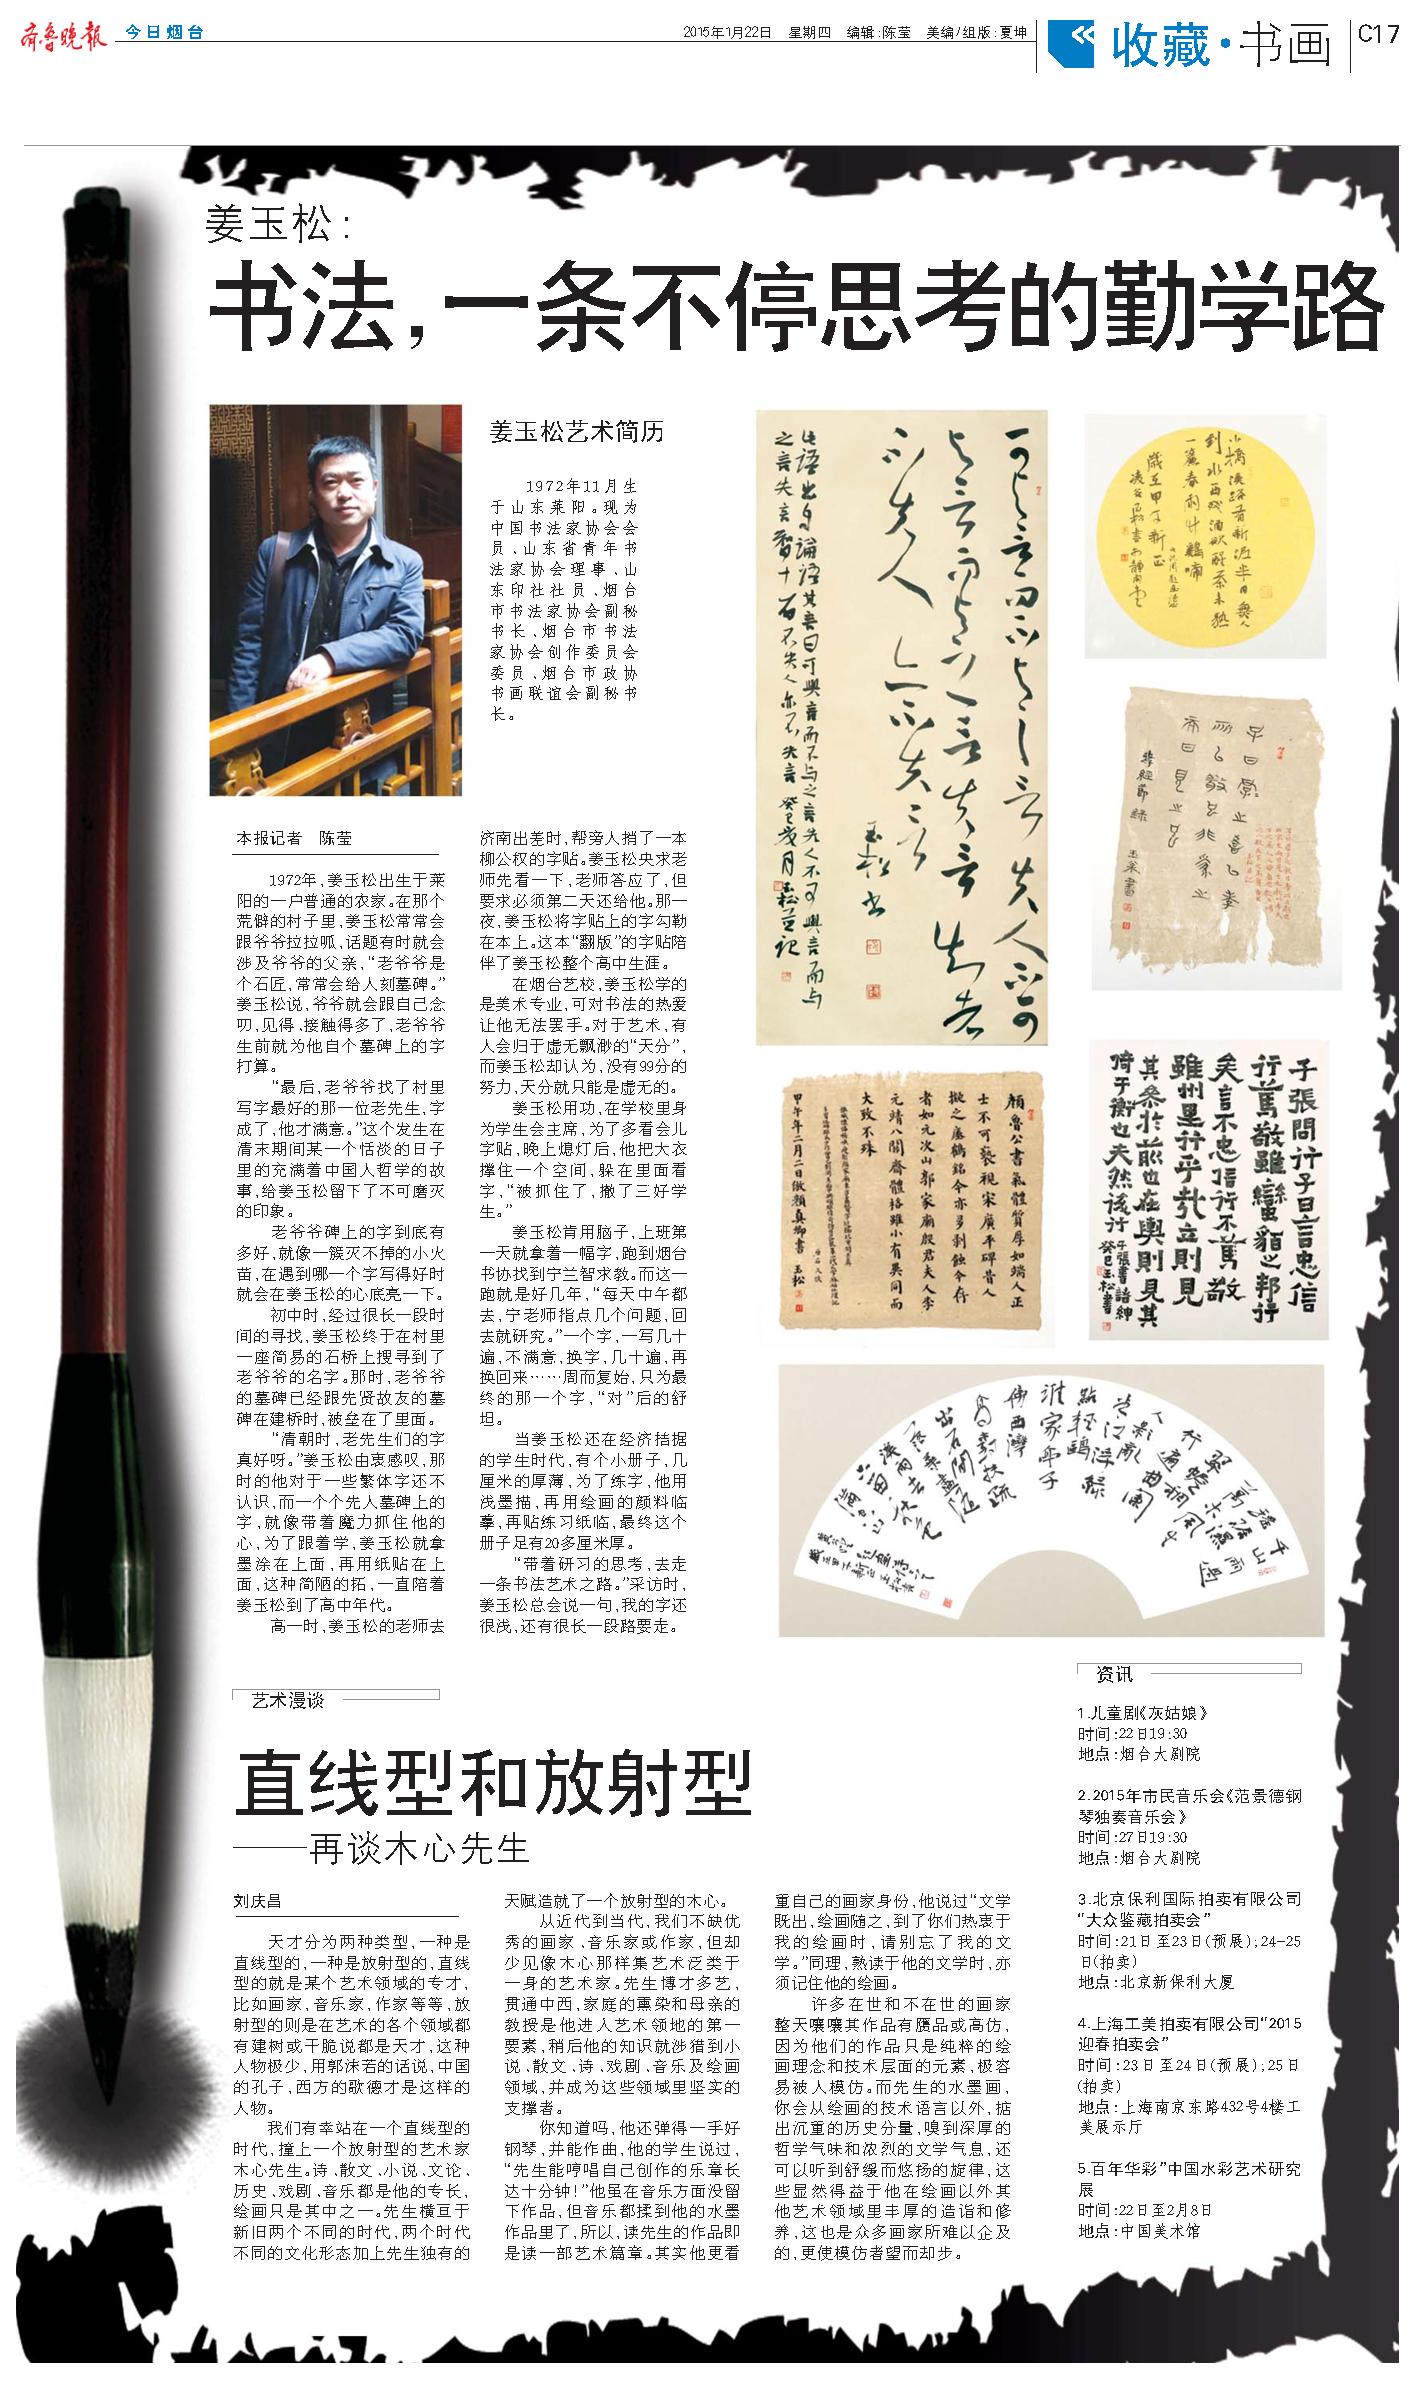 齐鲁晚报
今日烟台
2015年1月22日 星期四 编辑:陈莹 美编/组版:夏坤
收藏·书画
C17
姜玉松:
书法,一条不停思考的勤学路
姜玉松艺术简历
1972年11月生
于山东莱阳。现为
中国书法家协会会
员、山东省青年书
法家协会理事、山
东印社社员、烟台
市书法家协会副秘
书长、烟台市书法
家协会创作委员会
委员、烟台市政协
书画联谊会副秘书
长。
本报记者 陈莹
1972年,姜玉松出生于莱
阳的一户普通的农家。在那个
荒僻的村子里,姜玉松常常会
跟爷爷拉拉呱,话题有时就会
涉及爷爷的父亲,“老爷爷是
个石匠,常常会给人刻墓碑。”
姜玉松说,爷爷就会跟自己念
叨,见得、接触得多了,老爷爷
生前就为他自个墓碑上的字
打算。
“最后,老爷爷找了村里
写字最好的那一位老先生,字
成了,他才满意。”这个发生在
清末期间某一个恬淡的日子
里的充满着中国人哲学的故
事,给姜玉松留下了不可磨灭
的印象。
老爷爷碑上的字到底有
多好,就像一簇灭不掉的小火
苗,在遇到哪一个字写得好时
就会在姜玉松的心底亮一下。
初中时,经过很长一段时
间的寻找,姜玉松终于在村里
一座简易的石桥上搜寻到了
老爷爷的名字。那时,老爷爷
的墓碑已经跟先贤故友的墓
碑在建桥时,被垒在了里面。
“清朝时,老先生们的字
真好呀。”姜玉松由衷感叹,那
时的他对于一些繁体字还不
认识,而一个个先人墓碑上的
字,就像带着魔力抓住他的
心,为了跟着学,姜玉松就拿
墨涂在上面,再用纸贴在上
面,这种简陋的拓,一直陪着
姜玉松到了高中年代。
高一时,姜玉松的老师去
济南出差时,帮旁人捎了一本
柳公权的字贴。姜玉松央求老
师先看一下,老师答应了,但
要求必须第二天还给他。那一
夜,姜玉松将字贴上的字勾勒
在本上。这本“翻版”的字贴陪
伴了姜玉松整个高中生涯。
在烟台艺校,姜玉松学的
是美术专业,可对书法的热爱
让他无法罢手。对于艺术,有
人会归于虚无飘渺的“天分”,
而姜玉松却认为,没有99分的
努力,天分就只能是虚无的。
姜玉松用功,在学校里身
为学生会主席,为了多看会儿
字贴,晚上熄灯后,他把大衣
撑住一个空间,躲在里面看
字,“被抓住了,撤了三好学
生。”
姜玉松肯用脑子,上班第
一天就拿着一幅字,跑到烟台
书协找到宁兰智求教。而这一
跑就是好几年,“每天中午都
去,宁老师指点几个问题,回
去就研究。”一个字,一写几十
遍,不满意,换字,几十遍,再
换回来……周而复始,只为最
终的那一个字,“对”后的舒
坦。
当姜玉松还在经济拮据
的学生时代,有个小册子,几
厘米的厚薄,为了练字,他用
浅墨描,再用绘画的颜料临
摹,再贴练习纸临,最终这个
册子足有20多厘米厚。
“带着研习的思考,去走
一条书法艺术之路。”采访时,
姜玉松总会说一句,我的字还
很浅,还有很长一段路要走。
顏魯公書氣體質厚如端人正
士不可褻視宋廣平碑昔人
擬之瘞鶴銘今亦多剥蝕今存
者如元次山郭家廟殷君夫人李
元靖八關齋體格雖小有異同而
大致不殊
甲午年二月二日倣顏真卿書 玉松
子張問行子曰言忠信
行篤敬雖蠻貊之邦行
矣言不忠信行不篤敬
雖州里行乎哉立則見
其參於前也在輿則見其
倚于衡也夫然後行
子張書諸紳
癸巳玉松書
艺术漫谈
直线型和放射型
——再谈木心先生
刘庆昌
天才分为两种类型,一种是
直线型的,一种是放射型的,直线
型的就是某个艺术领域的专才,
比如画家,音乐家,作家等等,放
射型的则是在艺术的各个领域都
有建树或干脆说都是天才,这种
人物极少,用郭沫若的话说,中国
的孔子,西方的歌德才是这样的
人物。
我们有幸站在一个直线型的
时代,撞上一个放射型的艺术家
木心先生。诗、散文、小说、文论、
历史、戏剧、音乐都是他的专长,
绘画只是其中之一。先生横亘于
新旧两个不同的时代,两个时代
不同的文化形态加上先生独有的
天赋造就了一个放射型的木心。
从近代到当代,我们不缺优
秀的画家、音乐家或作家,但却
少见像木心那样集艺术泛类于
一身的艺术家。先生博才多艺,
贯通中西,家庭的熏染和母亲的
教授是他进入艺术领地的第一
要素,稍后他的知识就涉猎到小
说、散文、诗、戏剧、音乐及绘画
领域,并成为这些领域里坚实的
支撑者。
你知道吗,他还弹得一手好
钢琴,并能作曲,他的学生说过,
“先生能哼唱自己创作的乐章长
达十分钟!”他虽在音乐方面没留
下作品,但音乐都揉到他的水墨
作品里了,所以,读先生的作品即
是读一部艺术篇章。其实他更看
重自己的画家身份,他说过“文学
既出,绘画随之,到了你们热衷于
我的绘画时,请别忘了我的文
学。”同理,熟读于他的文学时,亦
须记住他的绘画。
许多在世和不在世的画家
整天嚷嚷其作品有赝品或高仿,
因为他们的作品只是纯粹的绘
画理念和技术层面的元素,极容
易被人模仿。而先生的水墨画,
你会从绘画的技术语言以外,掂
出沉重的历史分量,嗅到深厚的
哲学气味和浓烈的文学气息,还
可以听到舒缓而悠扬的旋律,这
些显然得益于他在绘画以外其
他艺术领域里丰厚的造诣和修
养,这也是众多画家所难以企及
的,更使模仿者望而却步。
资讯
1.儿童剧《灰姑娘》
时间:22日19:30
地点:烟台大剧院
2.2015年市民音乐会《范景德钢
琴独奏音乐会》
时间:27日19:30
地点:烟台大剧院
3.北京保利国际拍卖有限公司
“大众鉴藏拍卖会”
时间:21日至23日(预展);24-25
日(拍卖)
地点:北京新保利大厦
4.上海工美拍卖有限公司“2015
迎春拍卖会”
时间:23日至24日(预展);25日
(拍卖)
地点:上海南京东路432号4楼工
美展示厅
5.百年华彩”中国水彩艺术研究
展
时间:22日至2月8日
地点:中国美术馆